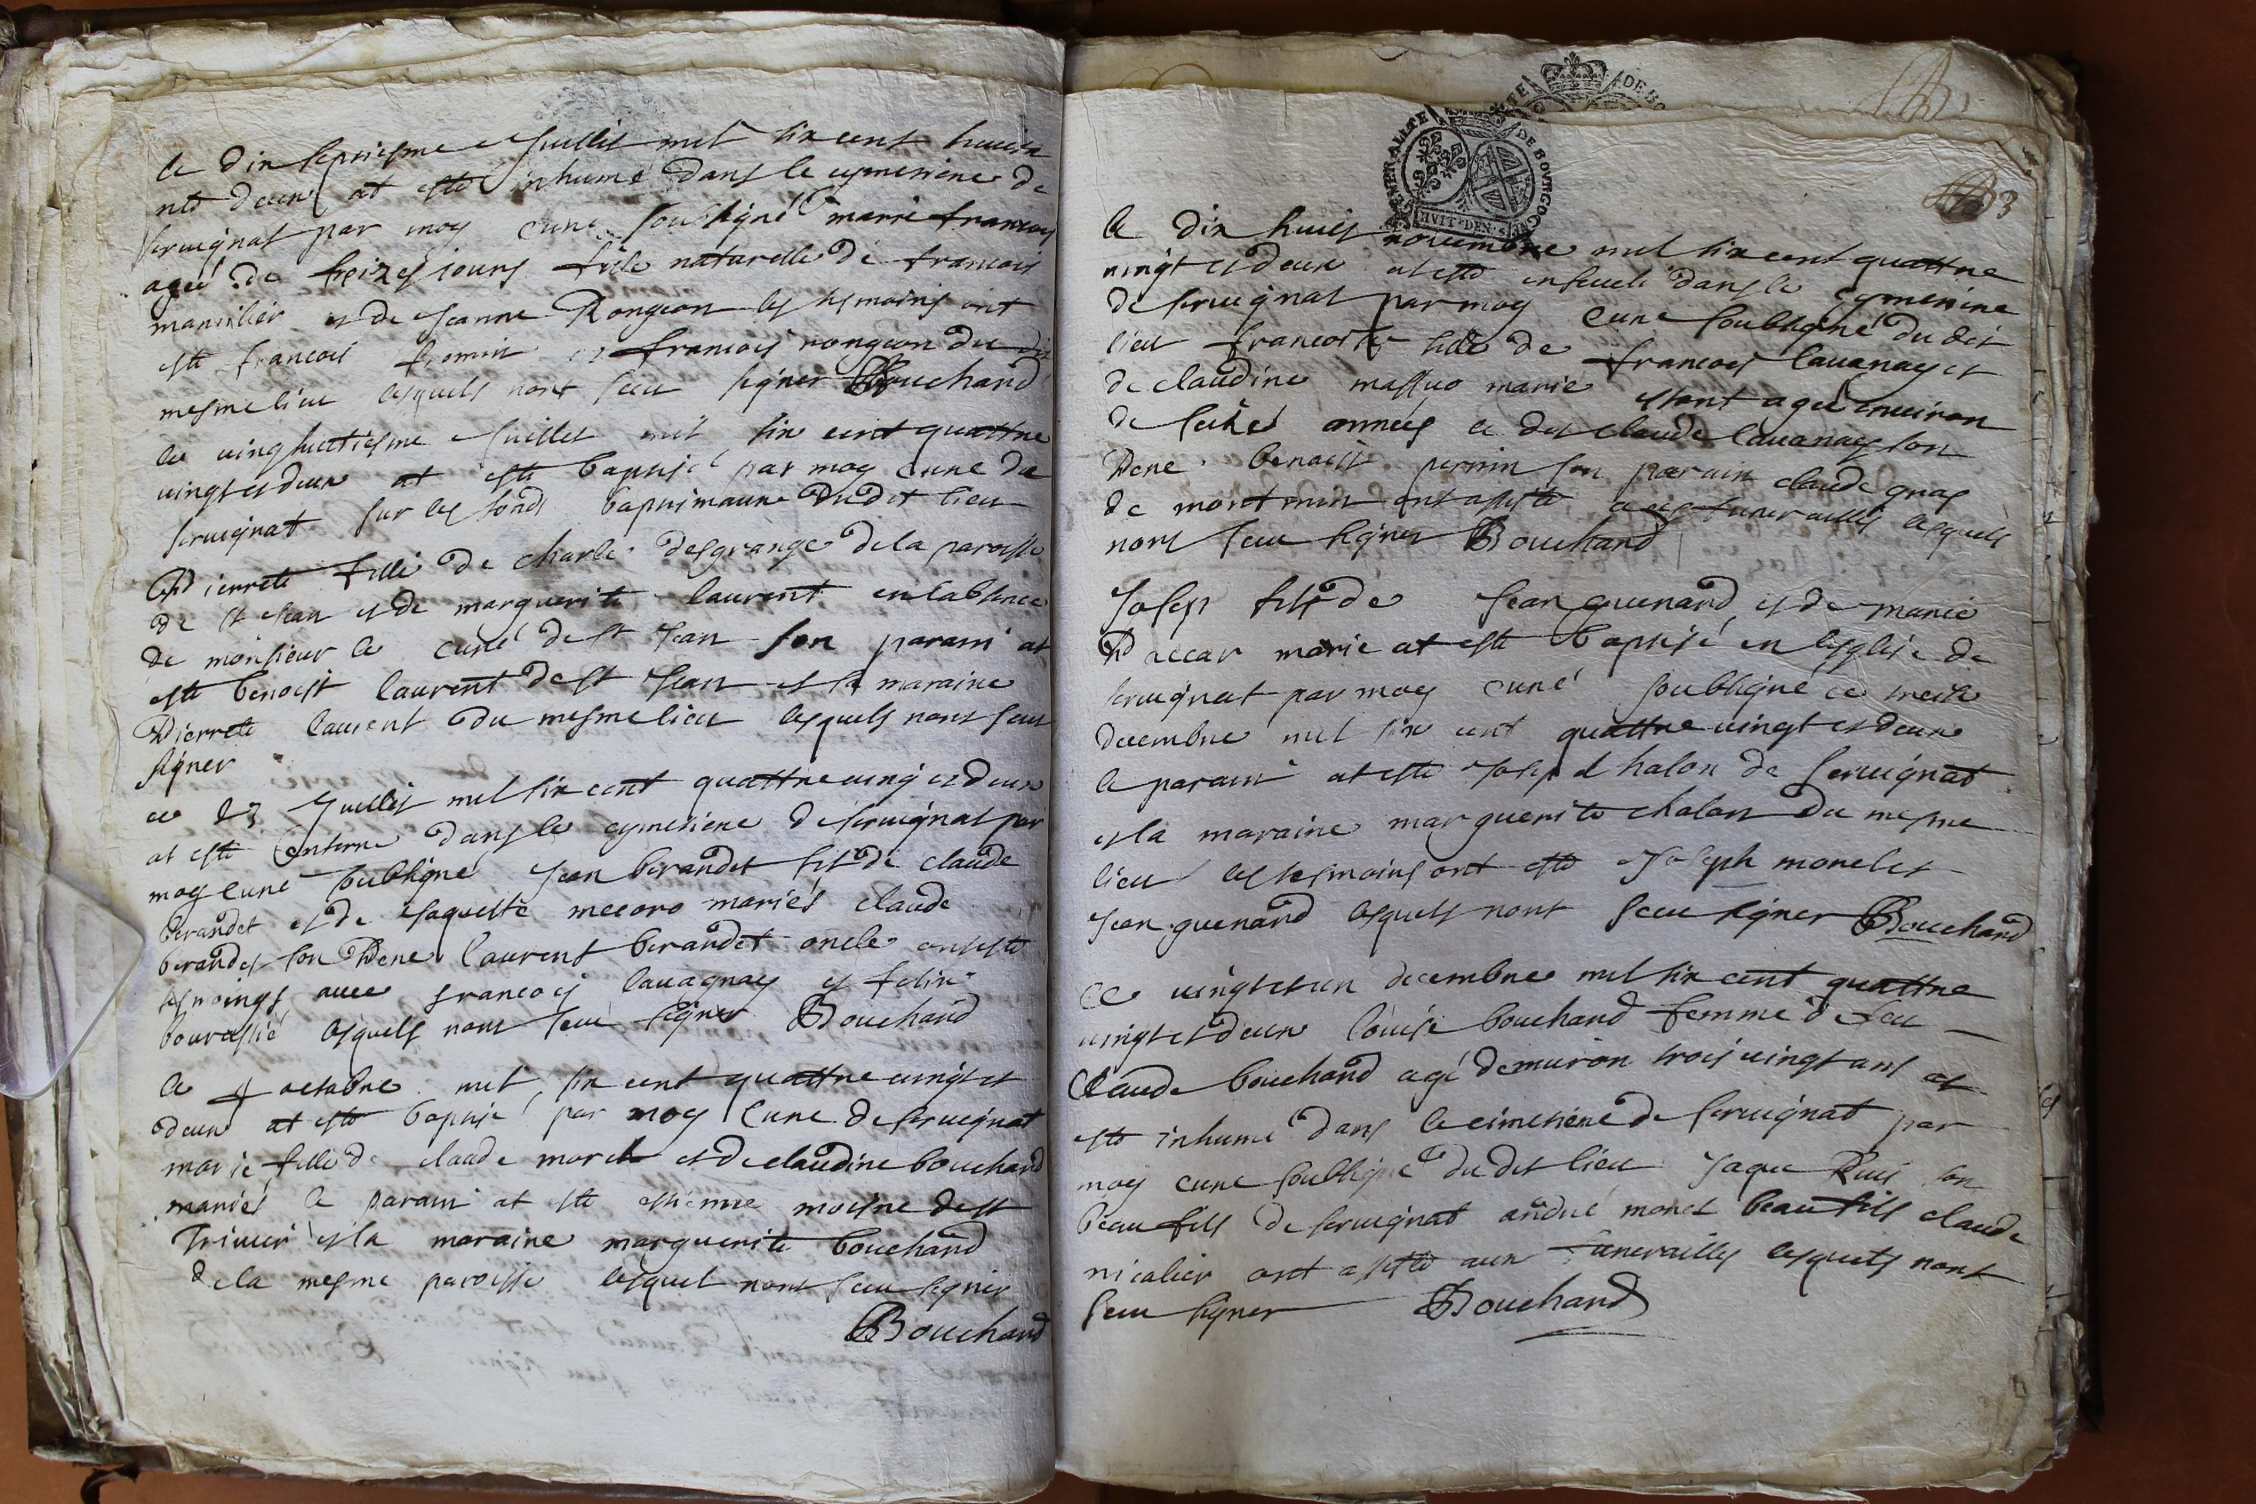 le dix septiesme Juillet mil six cent huicta
nte deux at este inhumé dans le cymetiere de
Seruignat par moy curé soubsigné marie francoise
agée de treizes jours fille naturelle de francois
et de Jeanne Rongeon les tesmoins ont
este francois fromin et francois rongeon du dit
mesme lieu lesquels nont sceu signer Bouchard
le uinghuictiesme Juillet mil six cent quattre
uingt et deux at este baptisé par moy curé de
seruignat sur les fonds baptimaux dudit lieu
Pierrete fille de charle desgrange de la paroisse
de st Jean et de marguerite laurent en labsence
de monsieur le curé de st Jean son parain at
este benoist laurent de st Jean et la maraine
Pierrete laurent du mesme lieu lesquels nont sceu
signer
ce 23 Juillet mil six cent quattre uingt et deux
at este enterré dans le cymetiere de seruignat par
moy curé soubsigné Jean berardet fils de claude
berardet et de Jaqueste mariés claude
berardet son Pere laurent berardet oncle ont este
tesmoings auec francois lauagnay et felix
lesquels nont sceu signer Bouchard
le 4 octobre mil six cent quattre uingt et
deux at este baptisé par moy curé de seruignat
marie fille de claude morel et de claudine bouchard
mariés le parain at este estienne moisne de st
Triuier et la maraine marguerite bouchard
de la mesme paroisse lesquel nont sceu signer
Bouchard
GENERALITE DE BOURGOGNE
HVIT DEN
3
le dix huict nouembre mil six cent quattre
uingt et deux at este enseueli dans le cymetiere
de seruignat par moy curé soubsigné du dit
lieu francois fils de francois lauanay et
de claudine marié estant agé enuiron
de seizes années le dit claude lauanay son
Pere benoist perrin son parain claude gras
de montmin ont assisté a ces funerailles lesquels
nont sceu signer Bouchard
Joseph fils de Jean guenard et de marie
Paccar marié at este baptisé en lesglise de
seruignat par moy curé soubsigné ce treize
decembre mil six cent quattre uingt et deux
le parain at este Joseph chalon de seruignat
et la maraine marguerite chalon du mesme
lieu les tesmoins ont este Joseph morel et
Jean guenard lesquels nont sceu signer Bouchard
Ce uingt et un decembre mil six cent quattre
uingt et deux louise bouchard femme de feu
Claude bouchard agé denuiron trois uingt ans at
este inhumé dans le cimetiere de seruignat par
moy curé soubsigné du dit lieu Jaque son
beau fils de seruignat andré morel beau fils claude
nicalier ont assisté aux funerailles lesquels nont
sceu signer Bouchard